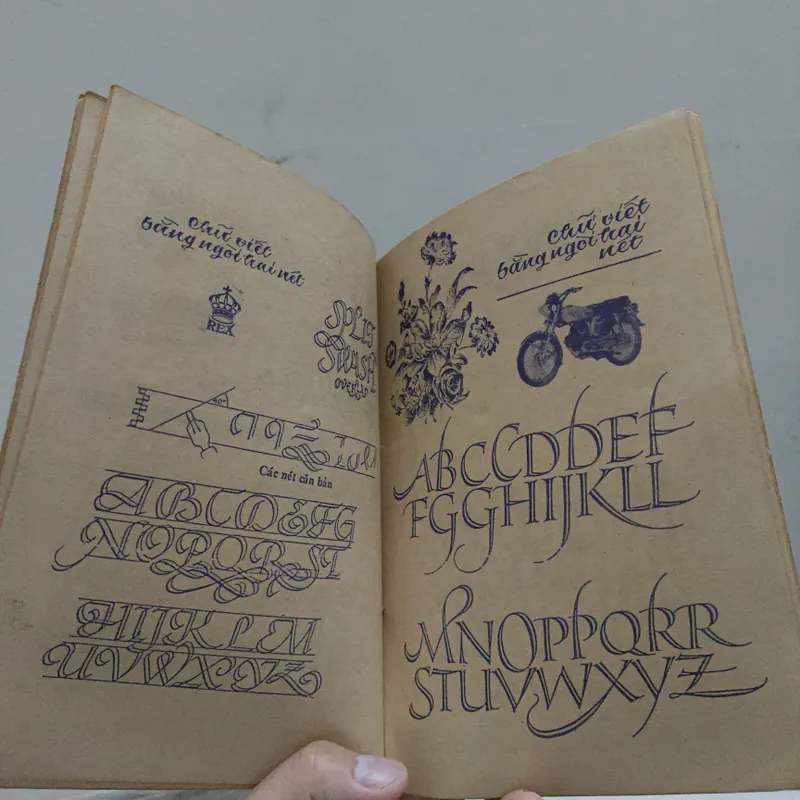 Chữ viết
bằng ngòi hai nét
REX
SPLIT
BRUSH
Các nét căn bản
ABCDEFG
NOPQRST
HIJKLM
UVWXYZ
Chữ viết
bằng ngòi hai
nét
ABCCDDEFF
FGGHIJKLL
MNOPPQRR
STUVWXYZ